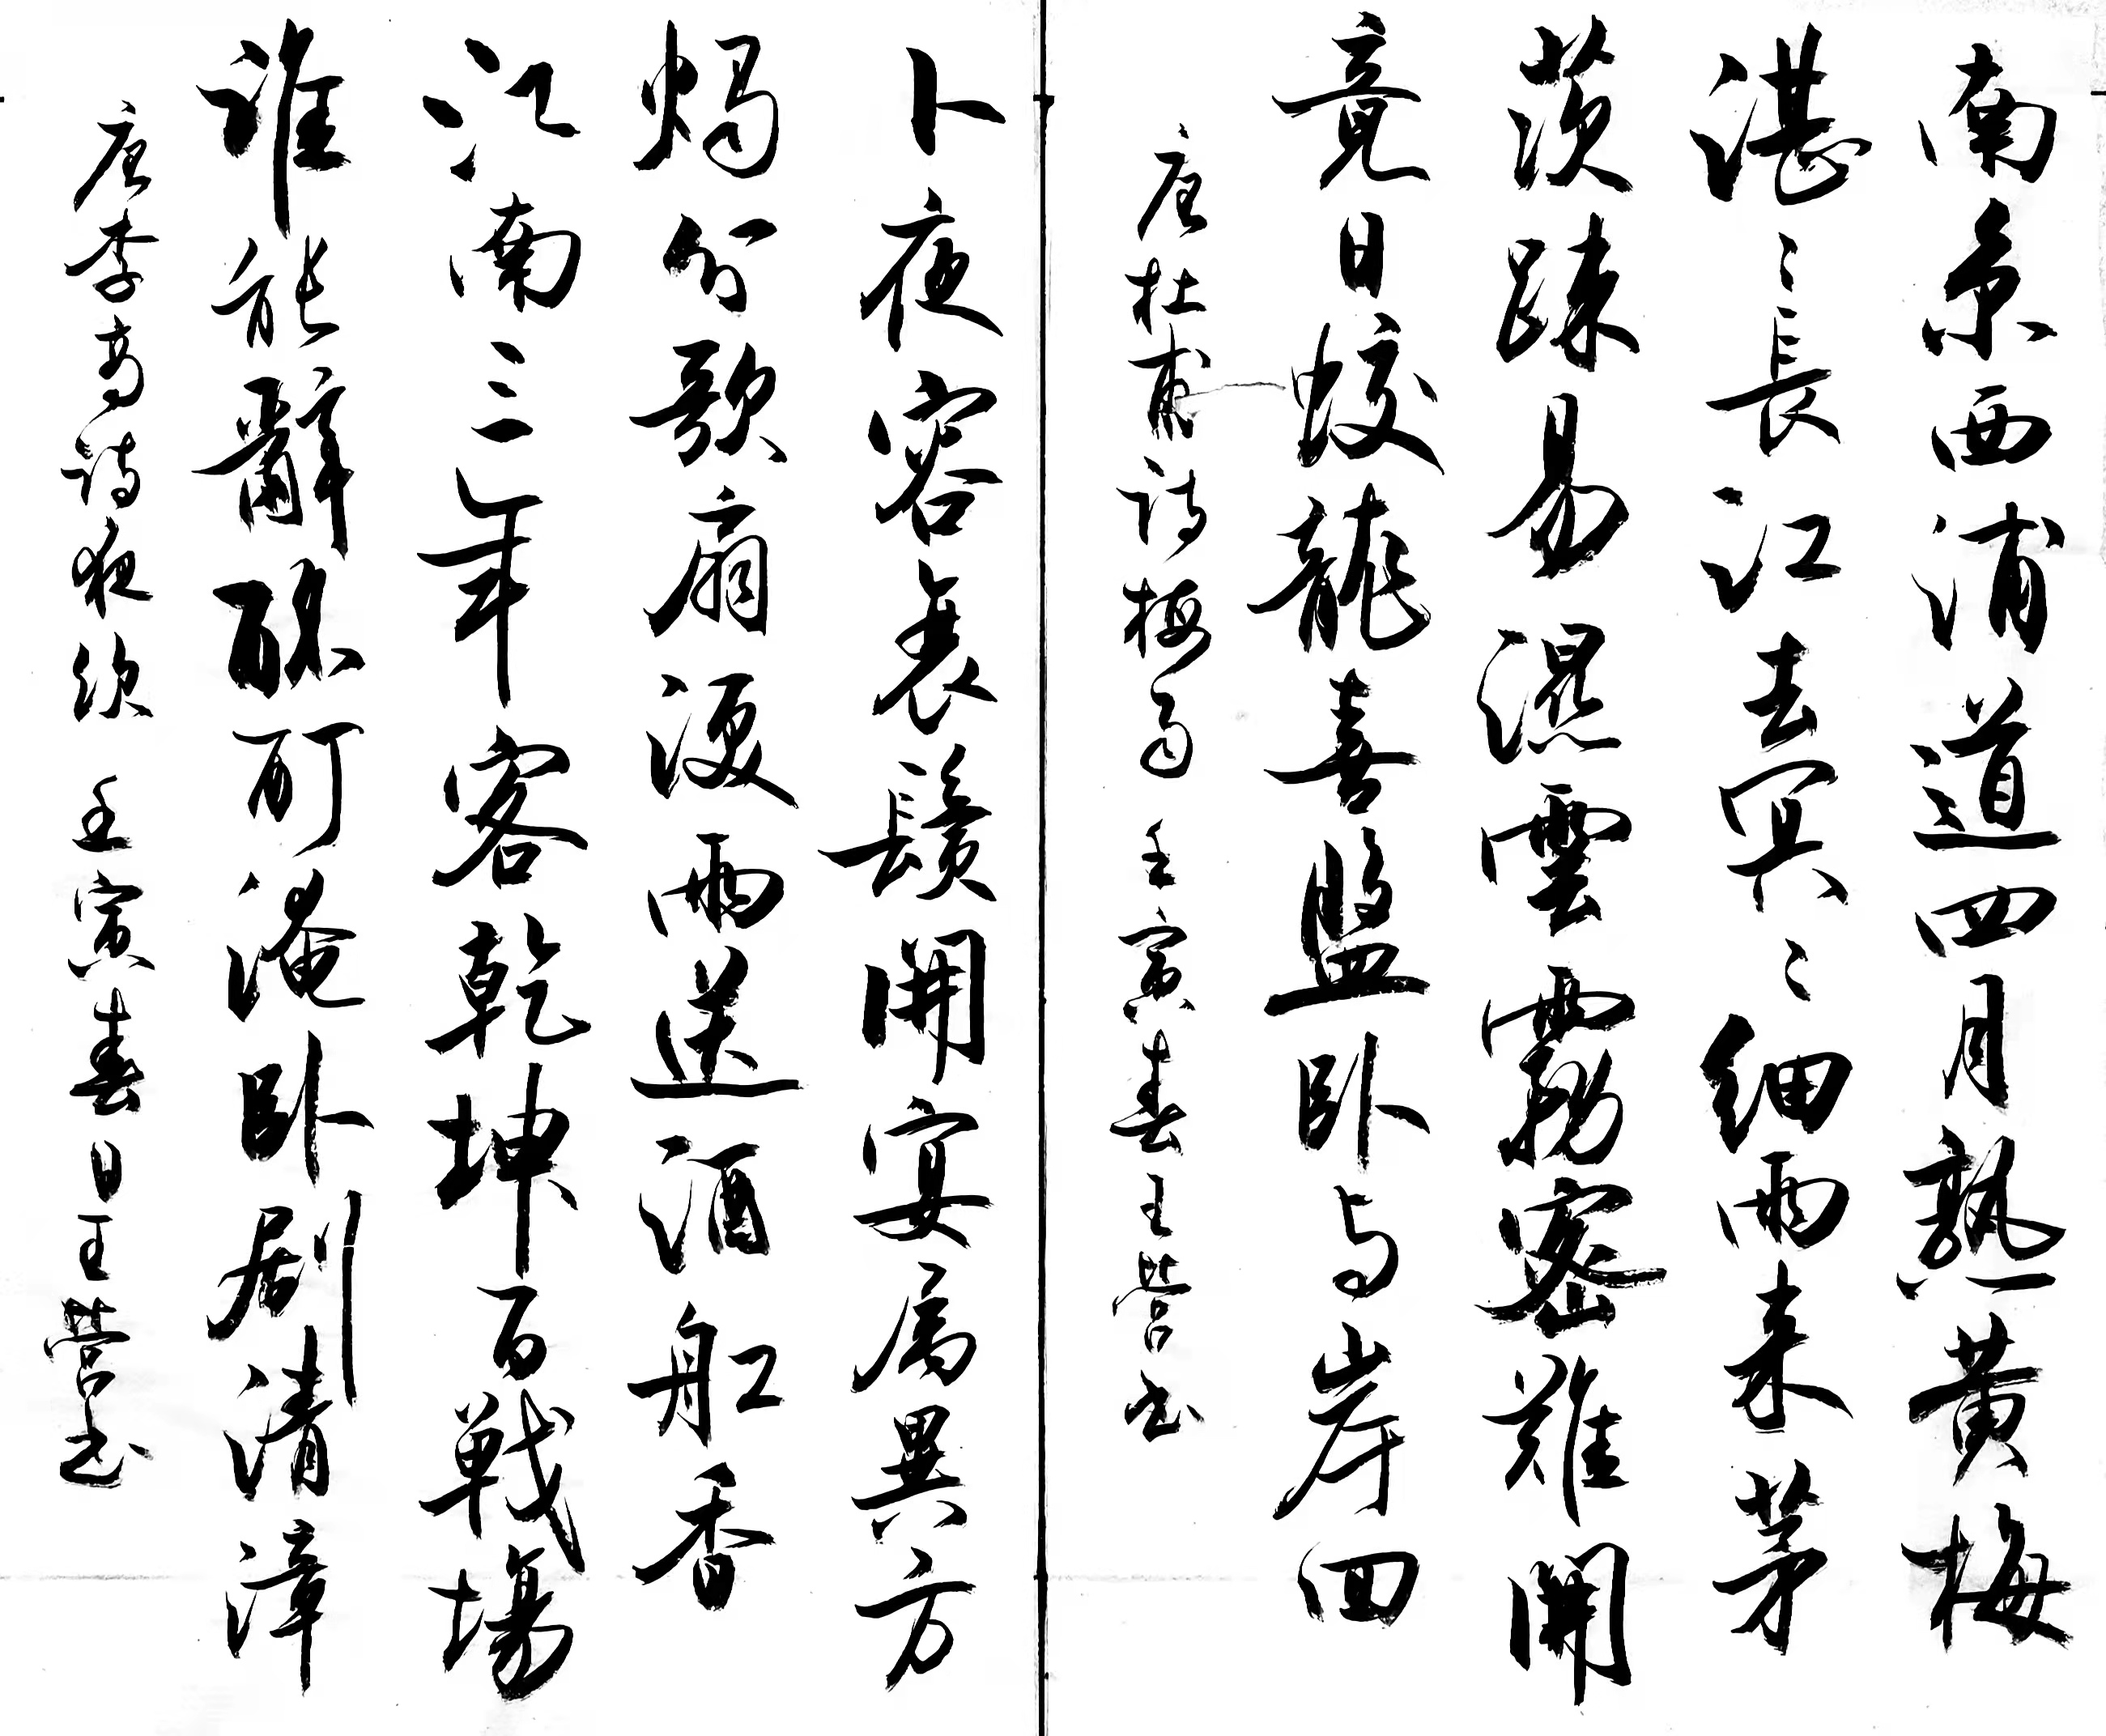 南京西浦道四月熟黄梅
湛〻長江去冥〻細雨来茅
茨疎易濕雲霧密難開
竟日蛟龍喜盤卧与岸回
唐杜甫詩梅雨 壬寅春王营书
卜夜容衰鬢開宴属異方
燭分歌扇淚雨送酒舡香
江南三年客乾坤百戰場
誰能辭酩酊淹卧剧清漳
唐李商詩夜飲 壬寅春日王营书